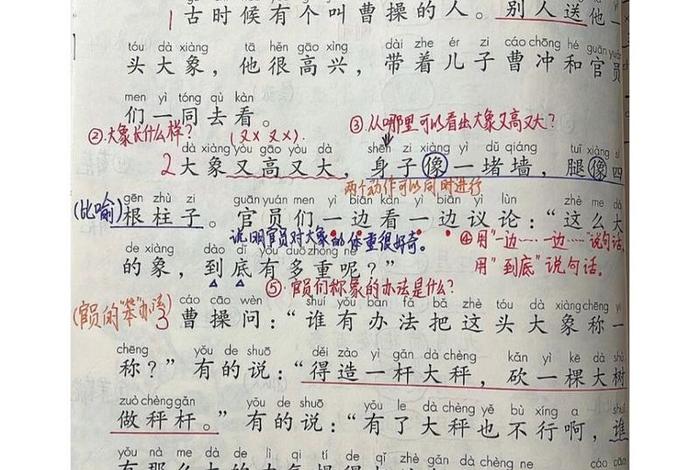 1古时候有个叫曹操的人。别人送他一
tóu dà xiàng tā hěn gāo xìng dài zhe ér zi cáo chōng hé guān yuán
头大象，他很高兴，带着儿子曹冲和官员
men yì tóng qù kàn
们一同去看。
②大象长什么样？ (又X又X) ③从哪里可以看出大象又高又大？
dà xiàng yòu gāo yòu dà shēn zi xiàng yì dǔ qiáng tuǐ xiàng sì
2大象又高又大，身子像一堵墙，腿像四
两个动作可以同时进行
gēn zhù zi guān yuán men yì biān kàn yì biān yì lùn zhè me dà
(比喻)根柱子。官员们一边看一边议论：“这么大
说明官员对大象的体重很好奇。 ④用“一边……一边…”说句话，
de xiàng dào dǐ yǒu duō zhòng ne
的象，到底有多重呢？” 用“到底”说句话。
⑤官员们称象的办法是什么？
cáo cāo wèn shuí yǒu bàn fǎ bǎ zhè tóu dà xiàng chēng yi
(官员的“笨”办法)3曹操问：“谁有办法把这头大象称一
chēng yǒu de shuō děi zào yì gǎn dà chèng kǎn yì kē dà shù
称？”有的说：“得造一杆大秤，砍一棵大树
zuò chèng gǎn yǒu de shuō yǒu le dà chèng yě bù xíng a shuí
做秤杆。”有的说：“有了大秤也不行啊，谁
yǒu nà me dà de lì qi tí de
有那么大的力气提得